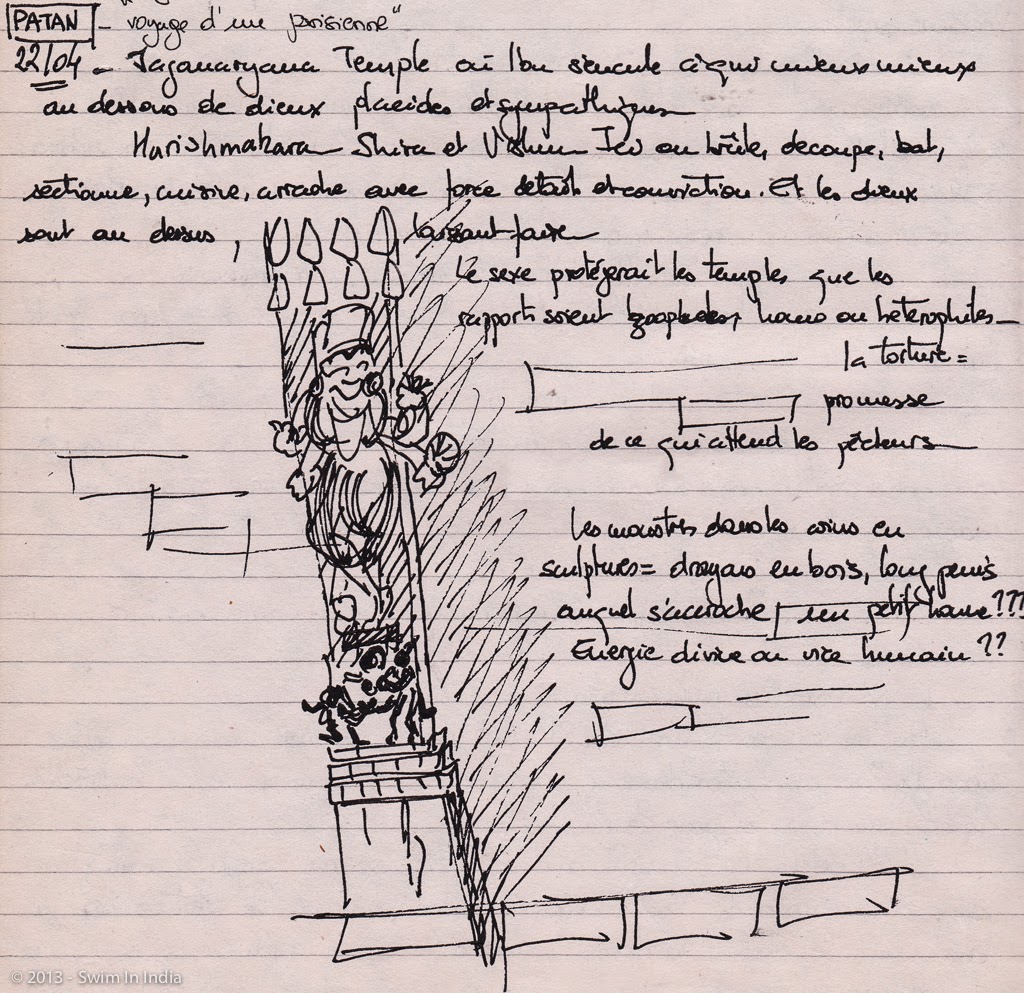 PATAN - voyage d'une parisienne"
22/04 - Jaganaryana Temple où l'on s'encule à qui mieux mieux
au dessous de dieux placides et sympathiques
Harishmakara Shiva et Vishnu Ici on brûle, découpe, bat,
sectionne, cuisine, arrache avec force détail et conviction. Et les dieux
sont au dessus, laissant-faire
Le sexe protégerait les temples que les
rapports soient zoophiles, homo ou hétérophiles
la torture =
promesse
de ce qui attend les pécheurs
Les monstres dans les coins en
sculptures = dragons en bois, long penis
auquel s'accroche un petit homme ???
Energie divine ou vice humain ??
© 2013 - Swim In India